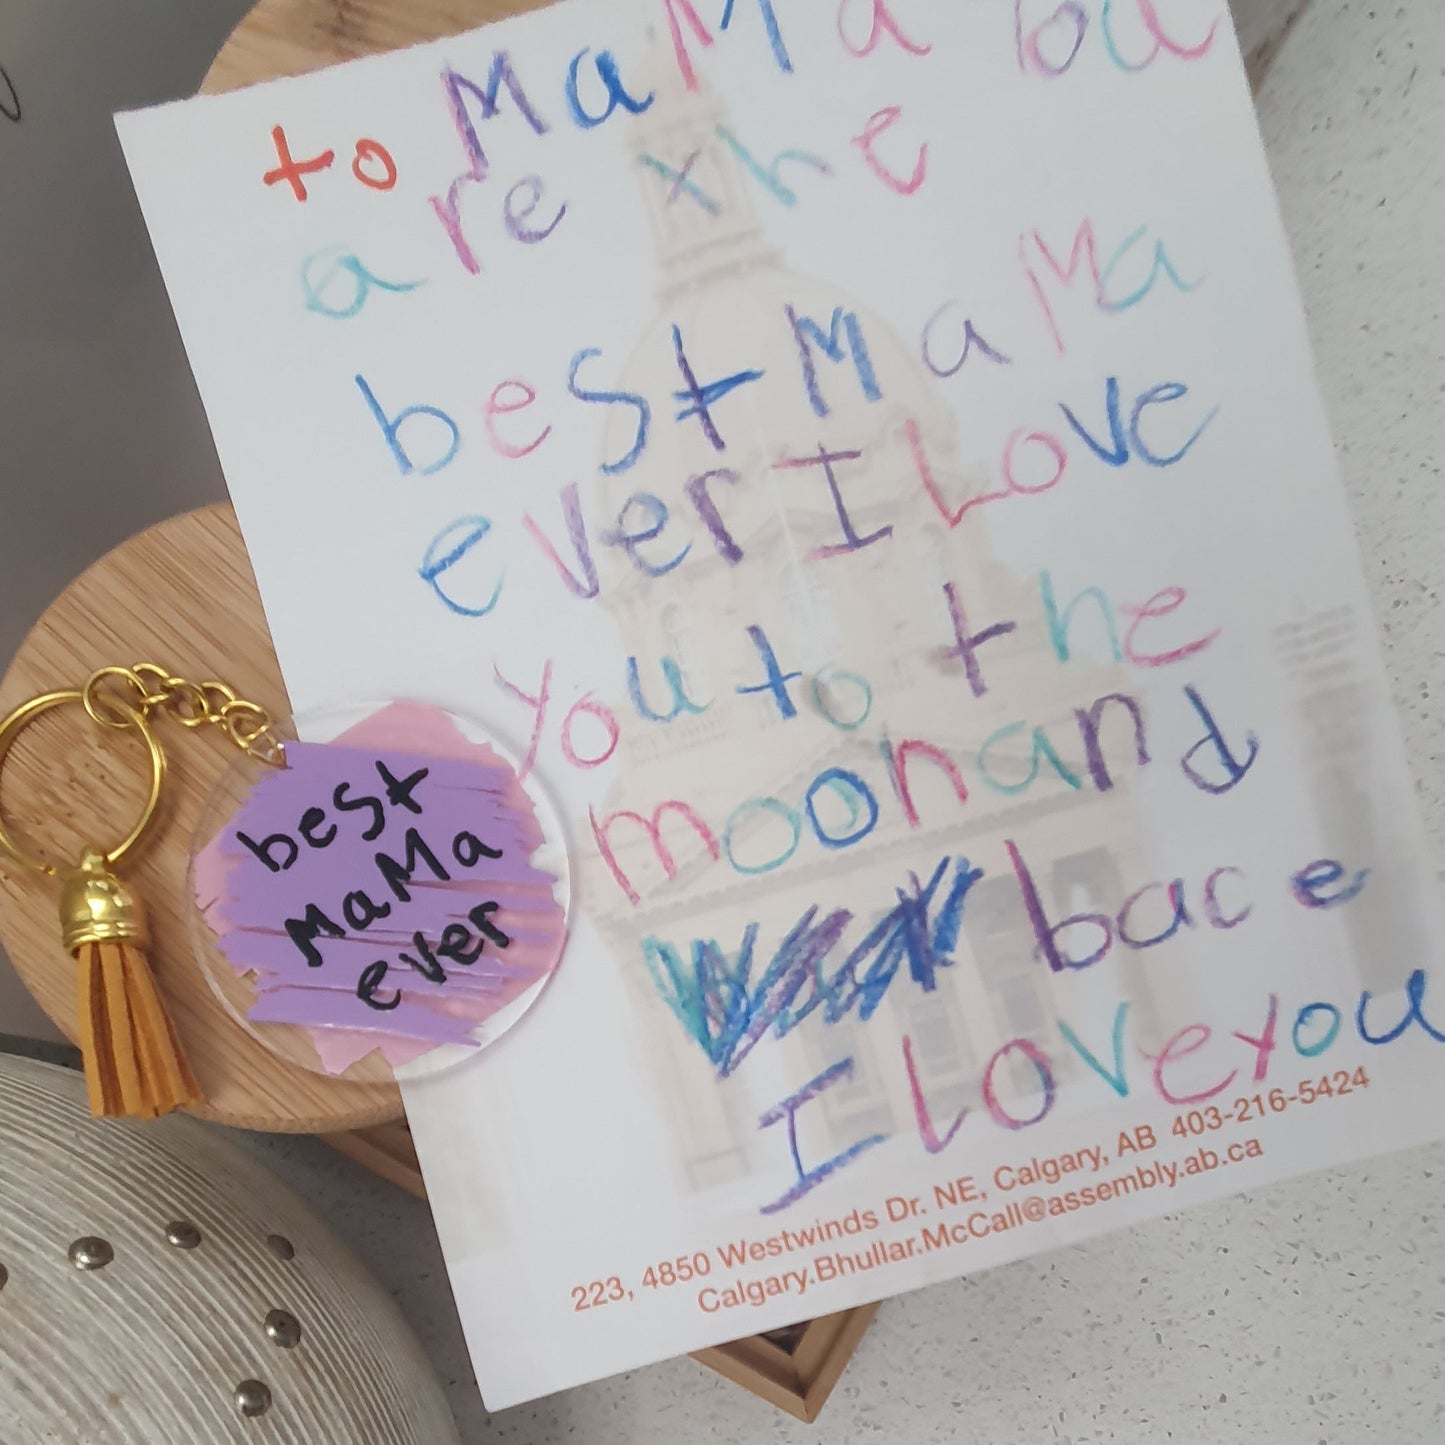 to MaMa ba
are the
best MaMa
ever I Love
you to the
moon and
bace
I Love you
223, 4850 Westwinds Dr. NE, Calgary, AB 403-216-5424
Calgary.Bhullar.McCall@assembly.ab.ca
best
MaMa
ever